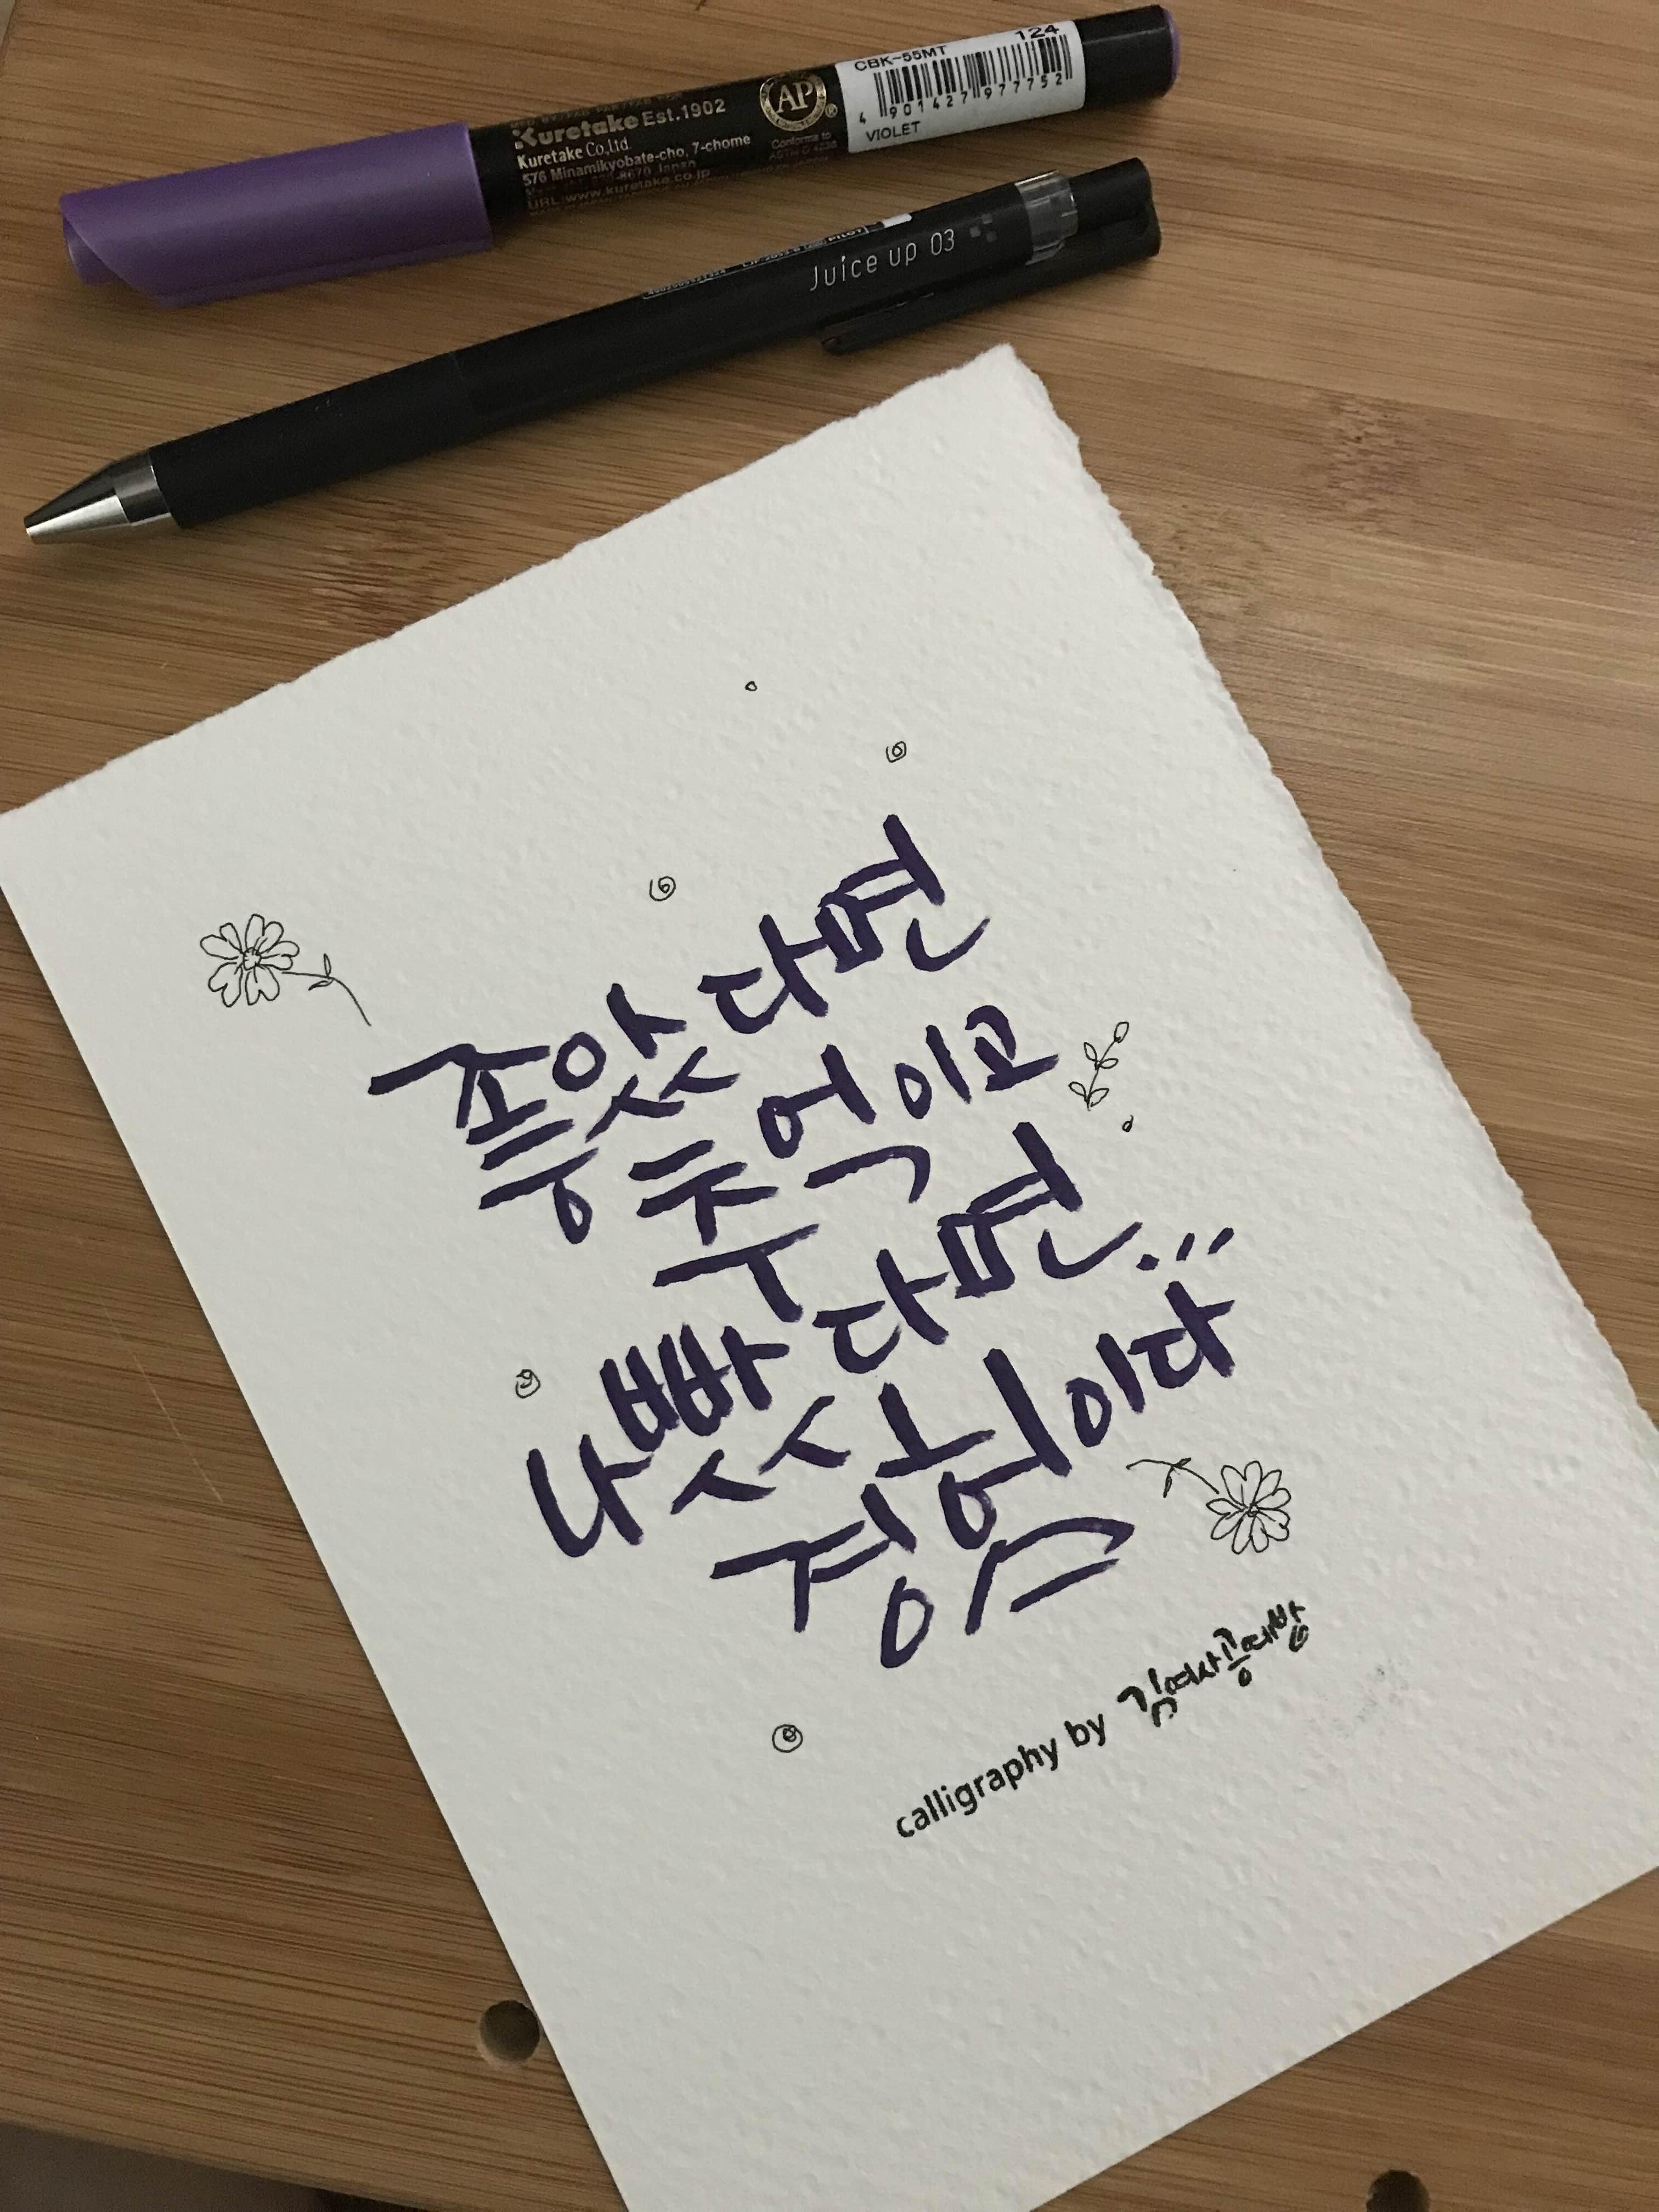 CBK-55MT 124
4 901427 977752
VIOLET
AP
Conforms to
ASTM D 4236
Kuretake Est.1902
Kuretake Co.,Ltd.
576 Minamikyobate-cho, 7-chome
Japan
URL:www.kuretake.co.jp
PILOT
Juice up 03
좋았다면
추억이고
나빴다면...
경험이다
calligraphy by 김여사공예방